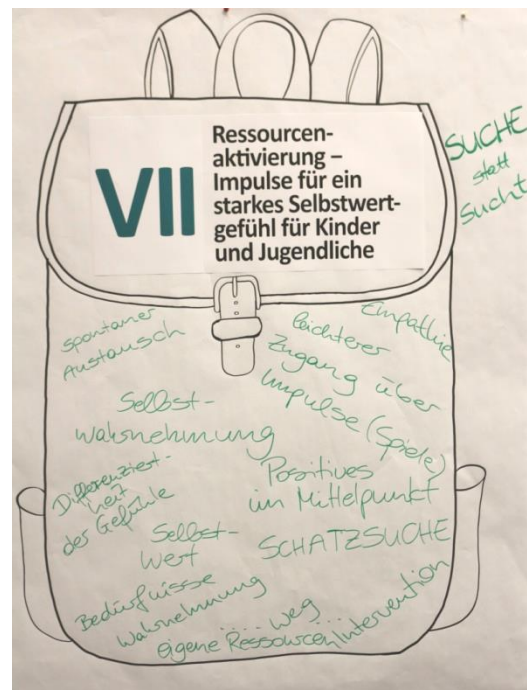 VII
Ressourcen-
aktivierung –
Impulse für ein
starkes Selbstwert-
gefühl für Kinder
und Jugendliche
SUCHE
statt
Sucht
spontaner
Austausch
Empathie
leichterer
Zugang über
Impulse (Spiele)
Selbst-
wahrnehmung
Differenziert-
heit
der Gefühle
Positives
im Mittelpunkt
Selbst-
Wert
SCHATZSUCHE
Bedürfnisse
Wahrnehmung
.... weg ....
eigene Ressourcen/Intervention